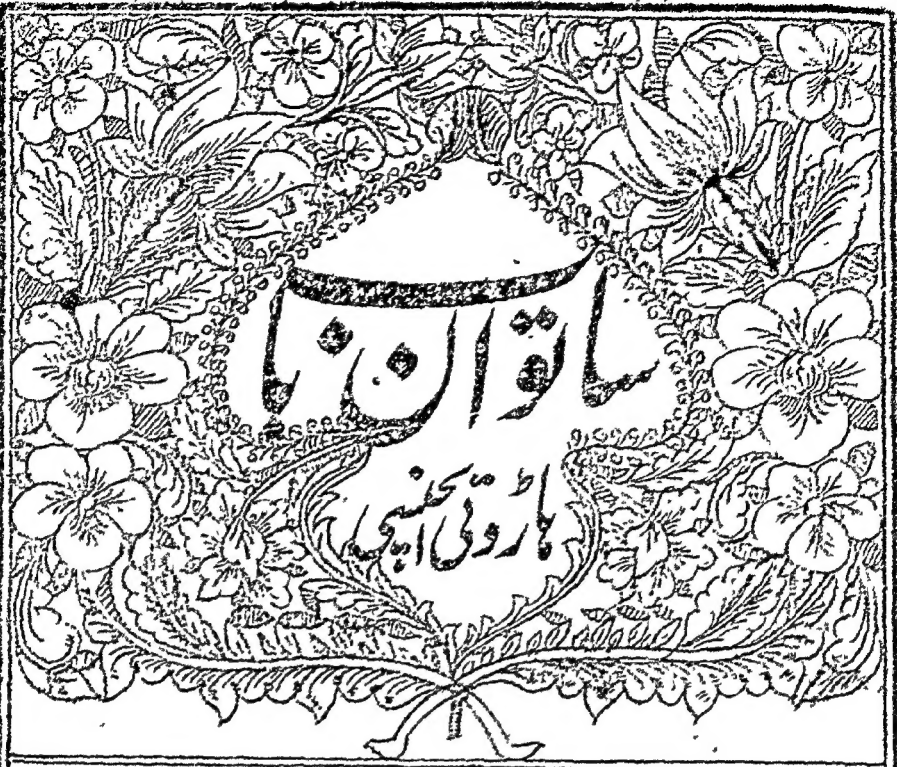 ساتوان باب
ہاڑوتی ایجنسی